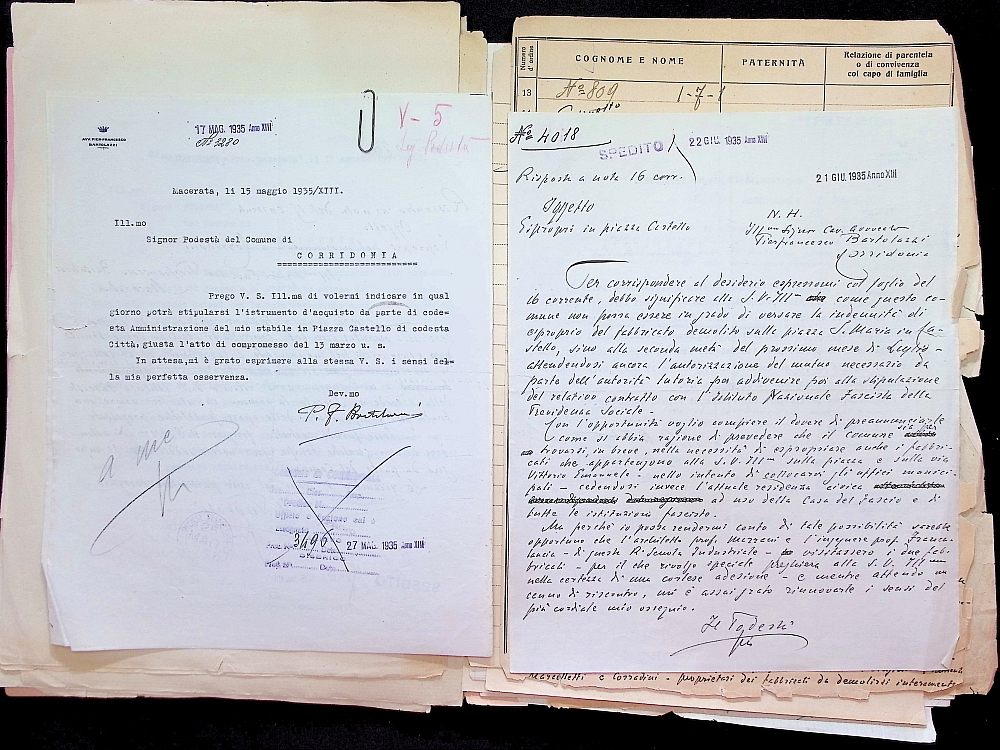 AVV. PIER-FRANCESCO
BARTOLAZZI
17 MAG. 1935 Anno XIII
N° 3280
V-5
Macerata, li 15 maggio 1935/XIII.
Ill.mo
Signor Podestà del Comune di
CORRIDONIA
Prego V. S. Ill.ma di volermi indicare in qual
giorno potrà stipularsi l'istrumento d'acquisto da parte di code=
sta Amministrazione del mio stabile in Piazza Castello di codesta
Città, giusta l'atto di compromesso del 13 marzo u. s.
In attesa, mi è grato esprimere alla stessa V. S. i sensi del=
la mia perfetta osservanza.
Dev.mo
a me
3496
27 MAG. 1935 Anno XIII
Numero d'ordine
COGNOME E NOME
PATERNITÀ
Relazione di parentela
o di convivenza
col capo di famiglia
13
N° 809
N° 4018
SPEDITO
22 GIU. 1935 Anno XIII
Risposta a nota 16 corr.
21 GIU. 1935 Anno XIII
Oggetto
Espropri in piazza Castello
N. H.
Ill.mo Signor Cav. Avvocato
Pierfrancesco Bartolazzi
Corridonia
Per corrispondere al desiderio espressomi col foglio del
16 corrente, debbo significare alla S.V. Ill.ma come questo co-
mune non possa essere in grado di versare la indennità di
esproprio del fabbricato demolito sulla piazza S. Maria in Ca-
stello, sino alla seconda metà del prossimo mese di Luglio -
attendendosi ancora l'autorizzazione del mutuo necessario da
parte dell'autorità tutoria per addivenire poi alla stipulazione
del relativo contratto con l'Istituto Nazionale Fascista della
Previdenza Sociale -
Con l'opportunità voglio compiere il dovere di preannunciarle
come si abbia ragione di prevedere che il comune sia per
trovarsi, in breve, nella necessità di espropriare anche i fabbri-
cati che appartengono alla S.V. Ill.ma sulla piazza e sulla via
Vittorio Emanuele - nello intento di collocarvi gli uffici munici-
pali - cedendosi invece l'attuale residenza civica
ad uso della Casa del Fascio e di
tutte le istituzioni fasciste.
Ma perché io possa rendermi conto di tale possibilità sarebbe
opportuno che l'architetto prof. Marrani e l'ingegnere prof. Franca-
lancia - di questa R. Scuola Industriale - visitassero i due fab-
bricati - per il che rivolgo speciale preghiera alla S.V. Ill.ma
nella certezza di una cortese adesione - e mentre attendo un
cenno di riscontro, mi è assai grato rinnovarle i sensi del
più cordiale mio ossequio.
Il Podestà
Marcelletti e Corradini - proprietari dei fabbricati da demolirsi interamente